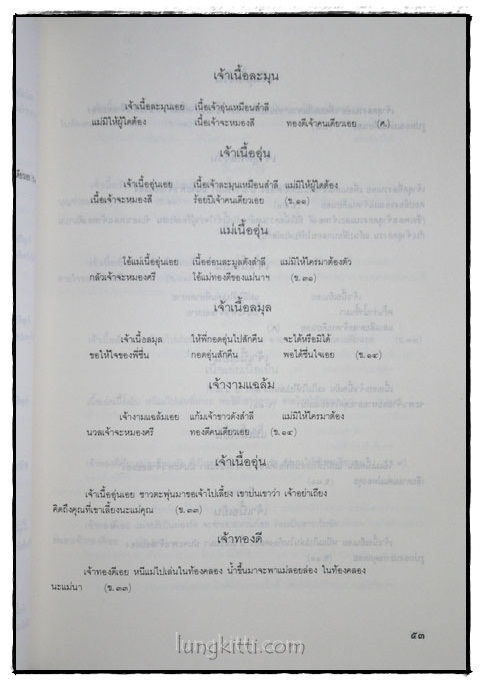 เจ้าเนื้อละมุน
เจ้าเนื้อละมุนเอย เนื้อเจ้าอุ่นเหมือนสำลี
แม่มิให้ผู้ใดต้อง เนื้อเจ้าจะหมองสี ทองดีเจ้าคนเดียวเอย (ค.)
เจ้าเนื้ออุ่น
เจ้าเนื้ออุ่นเอย เนื้อเจ้าละมุนเหมือนสำลี แม่มิให้ผู้ใดต้อง
เนื้อเจ้าจะหมองสี ร้อยปีเจ้าคนเดียวเอย (ข.๑๑)
แม่เนื้ออุ่น
ไอ้แม่เนื้ออุ่นเอย เนื้ออ่อนละมุลดังสำลี แม่มิให้ใครมาต้องตัว
กลัวเจ้าจะหมองศรี ไอ้แม่ทองดีของแม่นาฯ (ข.๓๑)
เจ้าเนื้อลมุล
เจ้าเนื้อลมุล ให้พี่กอดอุ่นไปสักคืน จะได้หรือมิได้
ขอให้ใจของพี่ชื่น กอดอุ่นสักคืน พอได้ชื่นใจเอย (ข.๑๔)
เจ้างามแฉล้ม
เจ้างามแฉล้มเอย แก้มเจ้าขาวดังสำลี แม่มิให้ใครมาต้อง
นวลเจ้าจะหมองศรี ทองดีคนเดียวเอย (ข.๑๔)
เจ้าเนื้ออุ่น
เจ้าเนื้ออุ่นเอย ชาวตะพุ่นมาขอเจ้าไปเลี้ยง เขาบ่นเขาว่า เจ้าอย่าเถียง
คิดถึงคุณที่เขาเลี้ยงนะแม่คุณ (ข.๓๓)
เจ้าทองดี
เจ้าทองดีเอย หนีแม่ไปเล่นในท้องคลอง น้ำขึ้นมาจะพาแม่ลอยล่อง ในท้องคลอง
นะแม่นา (ข.๓๓)
๕๓
lungkitti.com